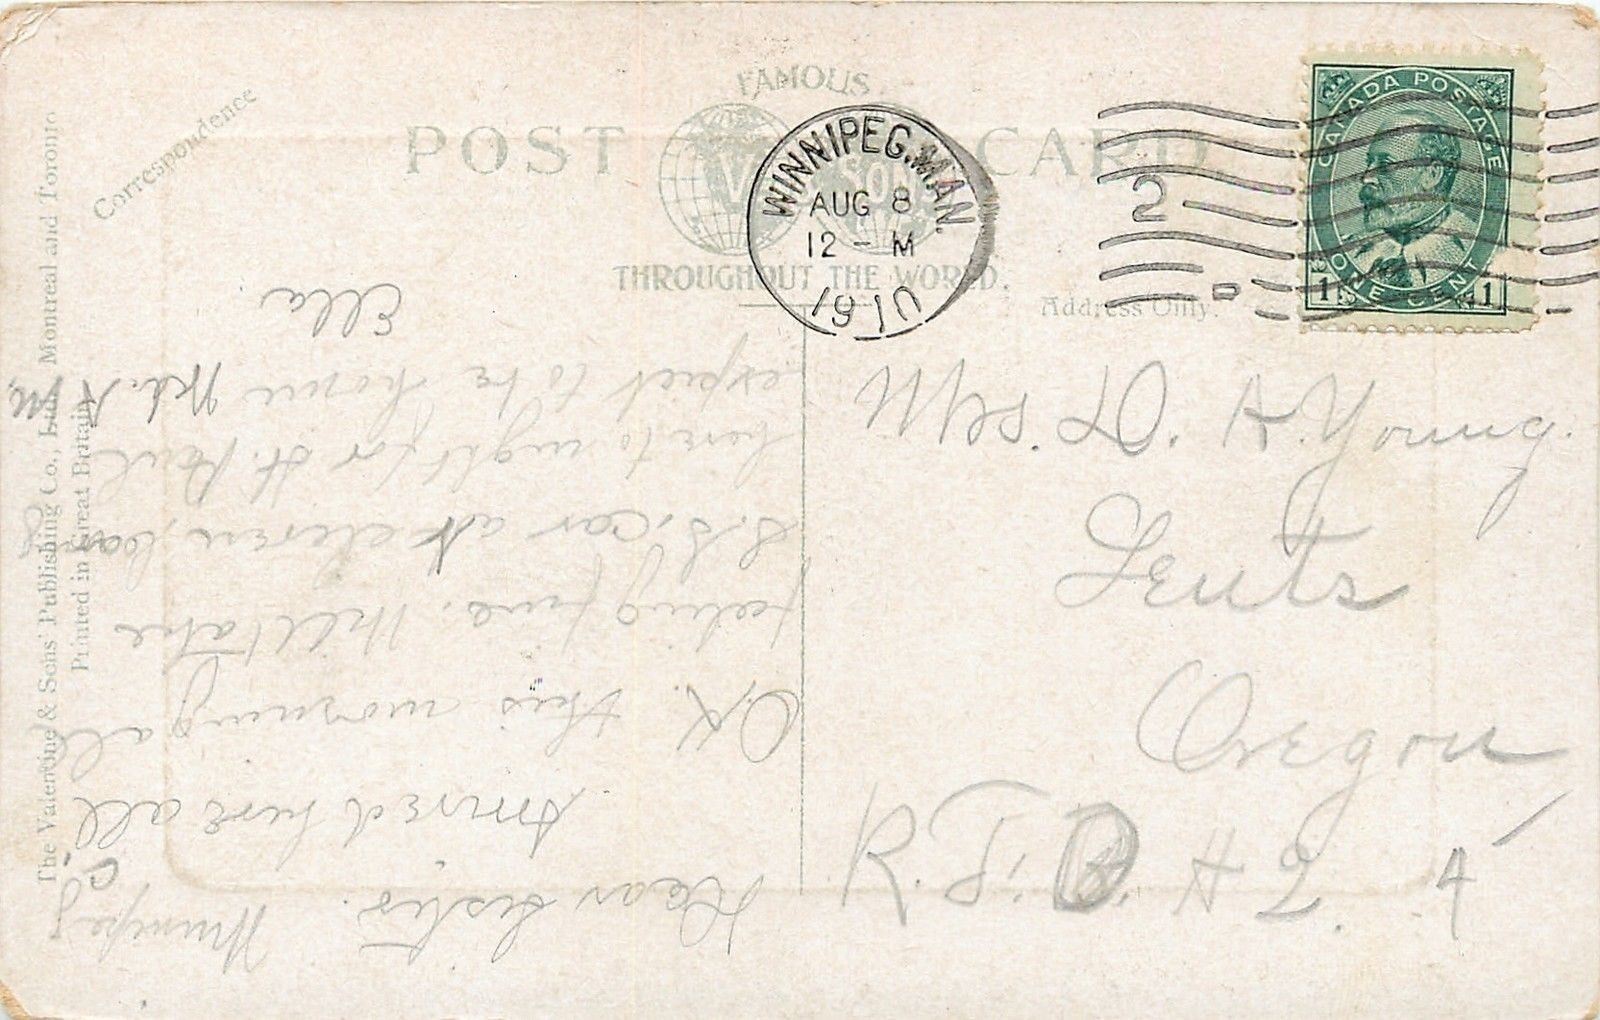 FAMOUS
POST CARD
THROUGHOUT THE WORLD.
Correspondence
Address Only.
The Valentine & Sons' Publishing Co., Ltd., Montreal and Toronto
Printed in Great Britain
WINNIPEG. MAN.
AUG 8
12 - M
1910
2
CANADA POSTAGE
ONE CENT
1 1
Winnipeg
Dear Sister.
Arrived here all
O.K. this morning all
feeling fine. Will take
S.S. car at eleven, leaving
here to night for St. Paul
expect to be home Wed. A.M.
Ella
Mrs. D. A. Young.
Lents
Oregon
R.F.D. # 2. 4